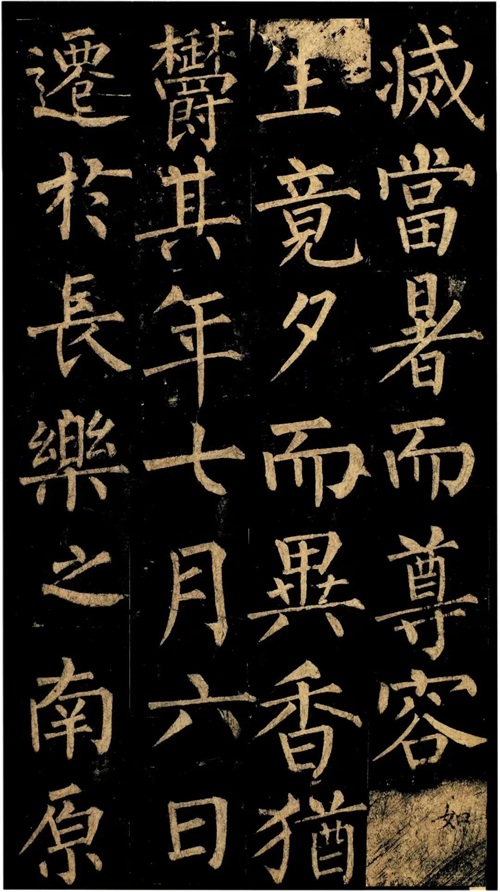 滅當暑而尊容如
生竟夕而異香猶
欝其年七月六日
遷於長樂之南原